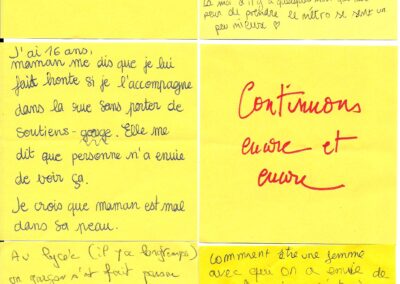 La moi d'il y a quelques mois qui avait
peur de prendre le métro se sent un
peu mieux ♡
J'ai 16 ans,
maman me dis que je lui
fait honte si je l'accompagne
dans la rue sans porter de
soutiens-gorge. Elle me
dit que personne n'a envie
de voir ça.
Je crois que maman est mal
dans sa peau.
Continuons
encore et
encore
Au lycée (il y a longtemps)
un garçon s'est fait passer
Comment être une femme
avec qui on a envie de